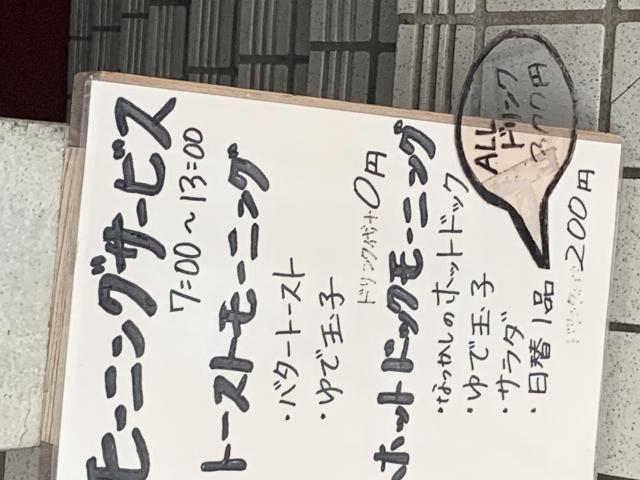 モーニングサービス
7:00～13:00
トーストモーニング
・バタートースト
・ゆで玉子
ドリンク代+0円
ホットドックモーニング
・なつかしのホットドック
・ゆで玉子
・サラダ
・日替1品
200円
ALL
ドリンク